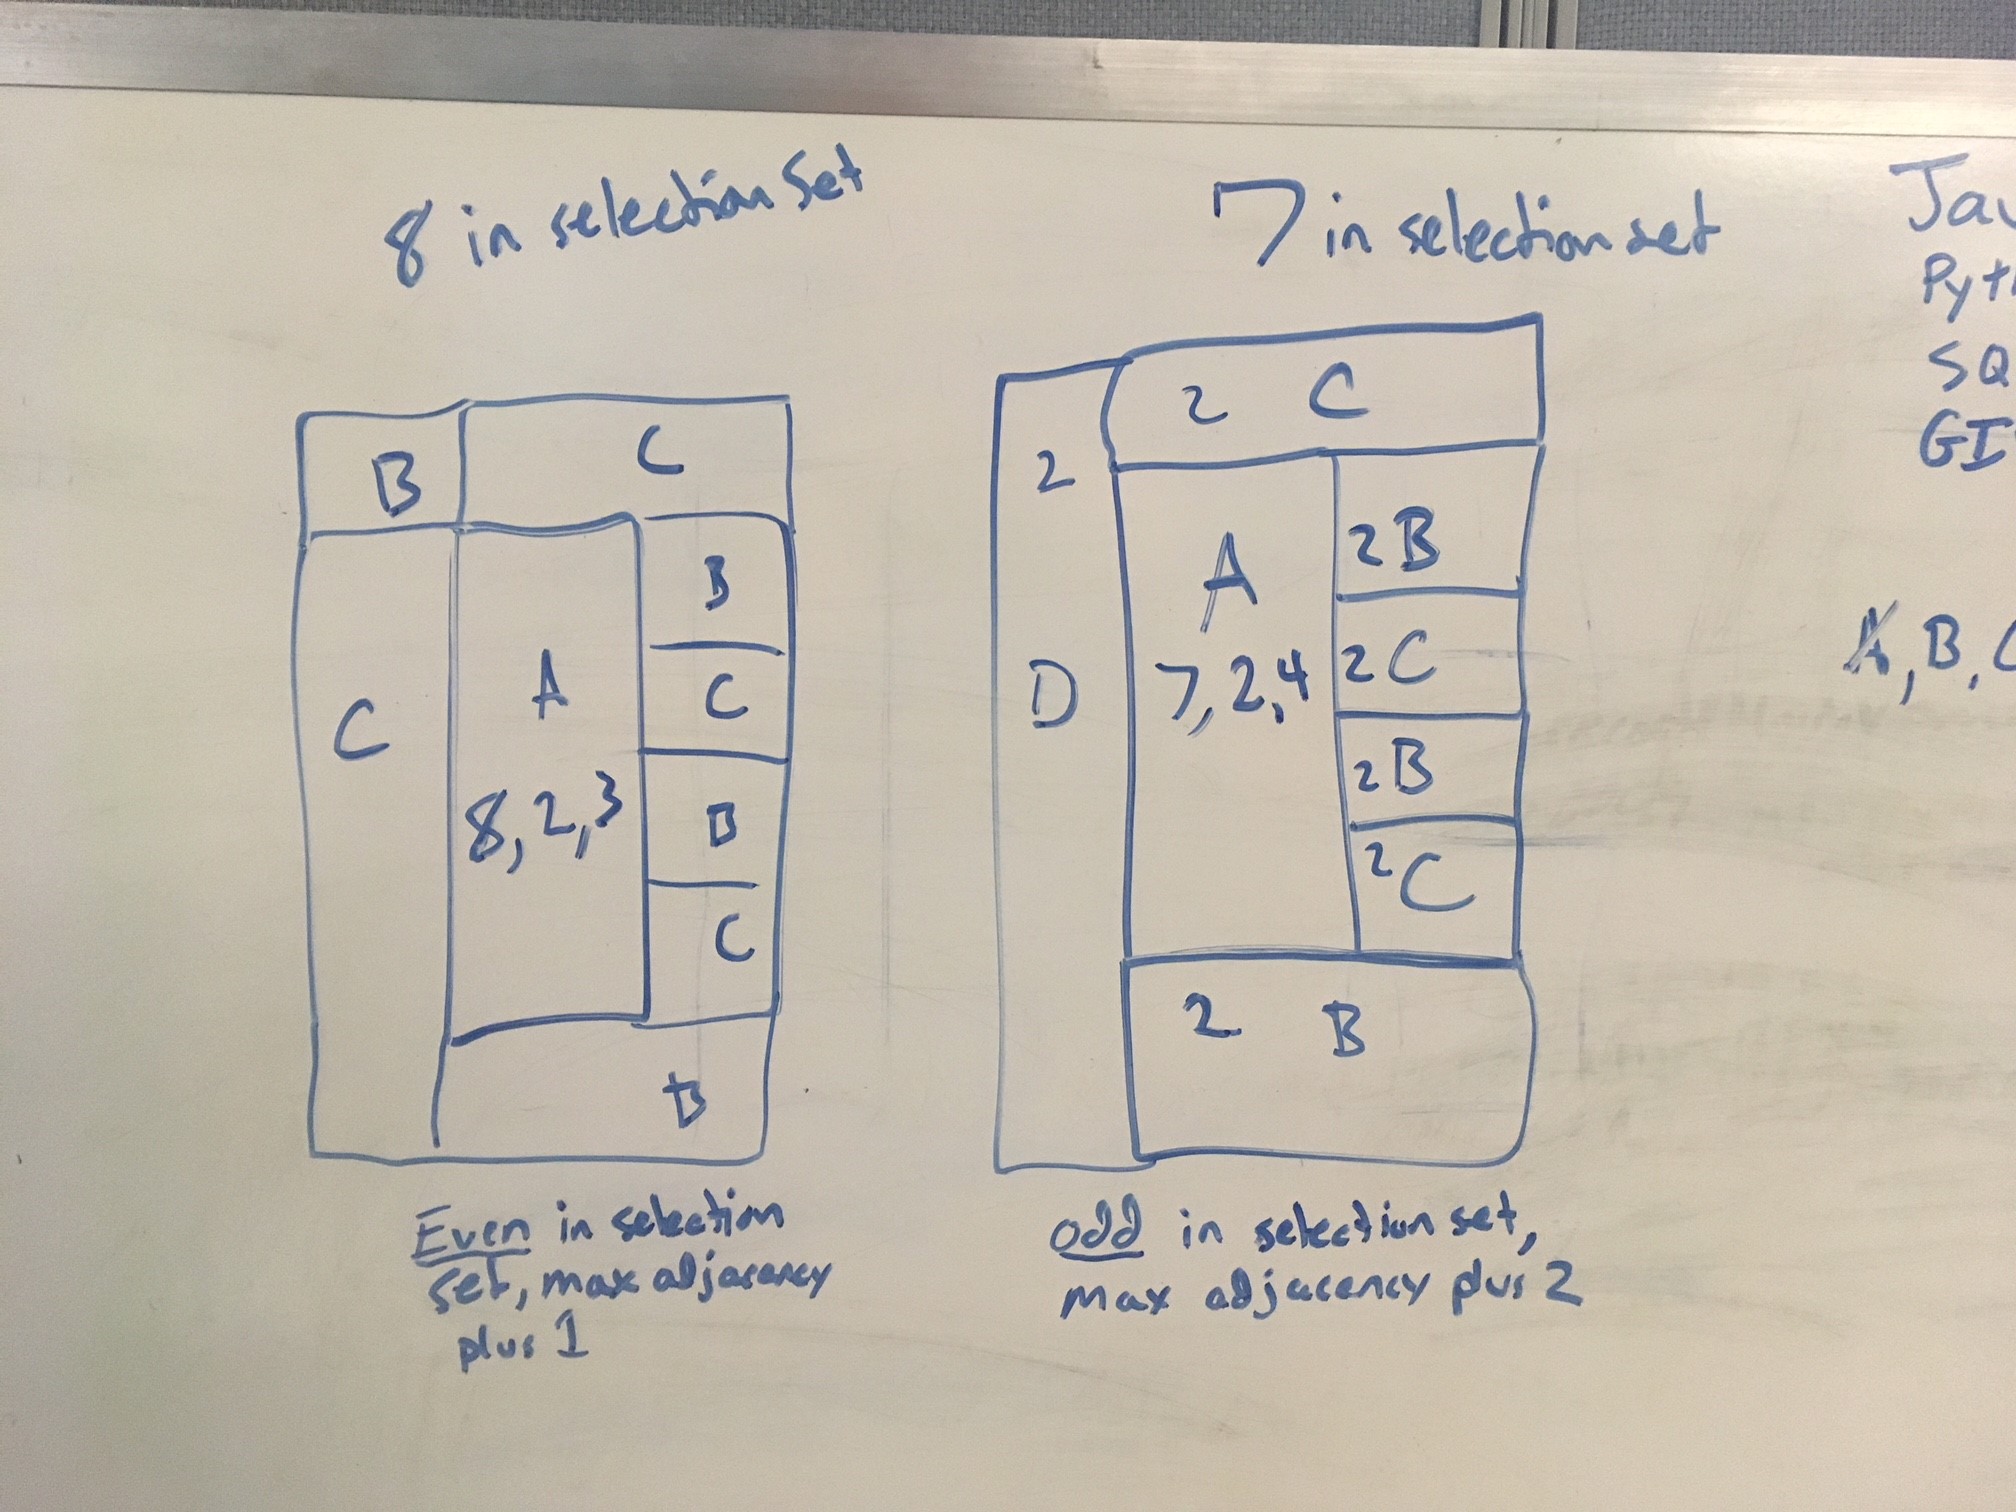 8 in selection set
B
C
B
C
B
C
C
A
8, 2, 3
B
Even in selection
set, max adjacency
plus 1
7 in selection set
2 C
2
D
A
7, 2, 4
2B
2C
2B
2C
2 B
odd in selection set,
max adjacency plus 2
A, B, C